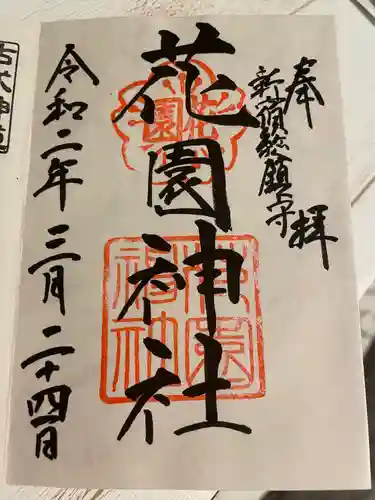 奉拝
新宿総鎮守
花園神社
花園
花園
神社
令和二年三月二十四日